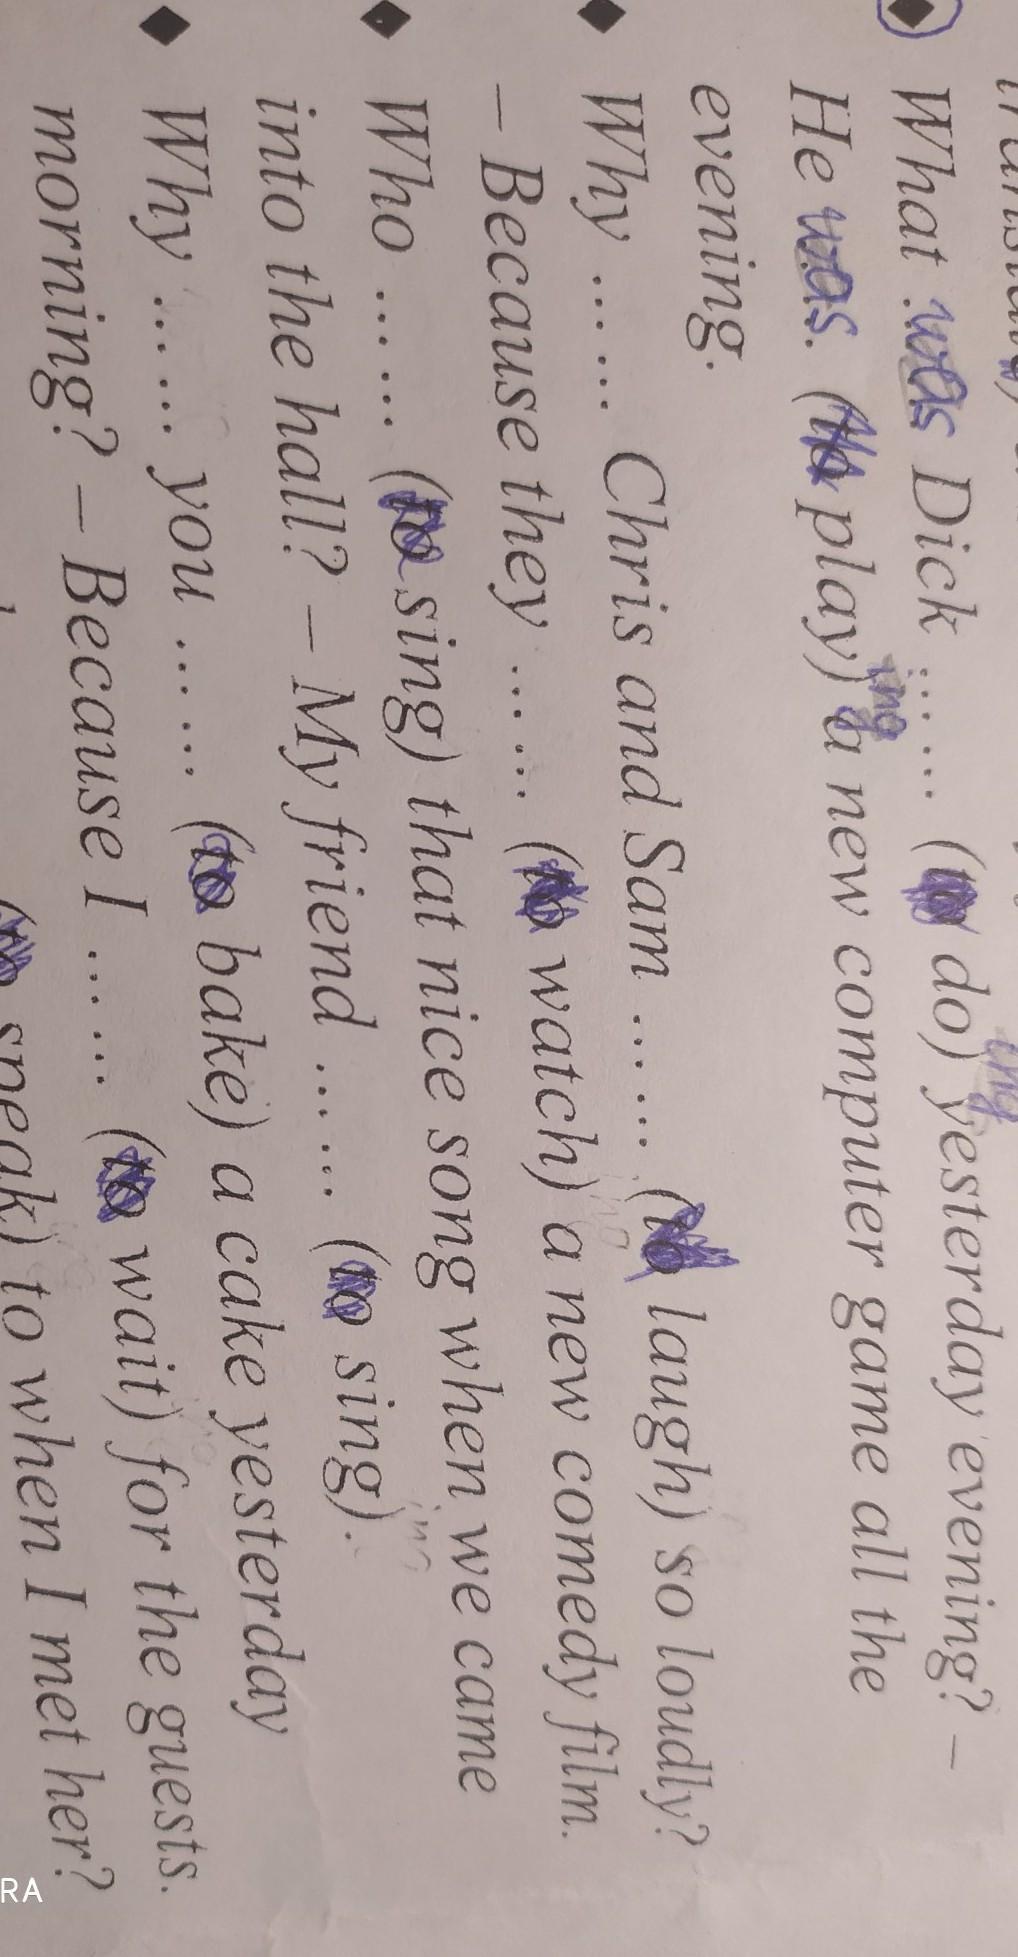 ◆ What ..was.. Dick ...... (to do)ing yesterday evening? –
He was. (to play)ing a new computer game all the
evening.
◆ Why ...... Chris and Sam ...... (to laugh) so loudly?
– Because they ...... (to watch)ing a new comedy film.
◆ Who ...... (to sing) that nice song when we came
into the hall? – My friend ...... (to sing).
◆ Why ...... you ...... (to bake) a cake yesterday
morning? – Because I ...... (to wait) for the guests.
(to speak) to when I met her?
RA